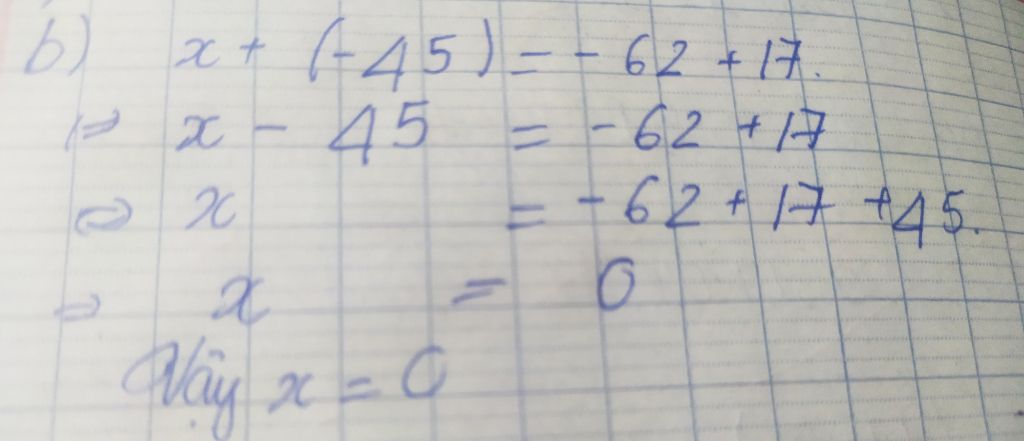 b) x + (-45) = -62 + 17.
⇒ x - 45 = -62 + 17
⇒ x = -62 + 17 + 45.
⇒ x = 0
Vậy x = 0